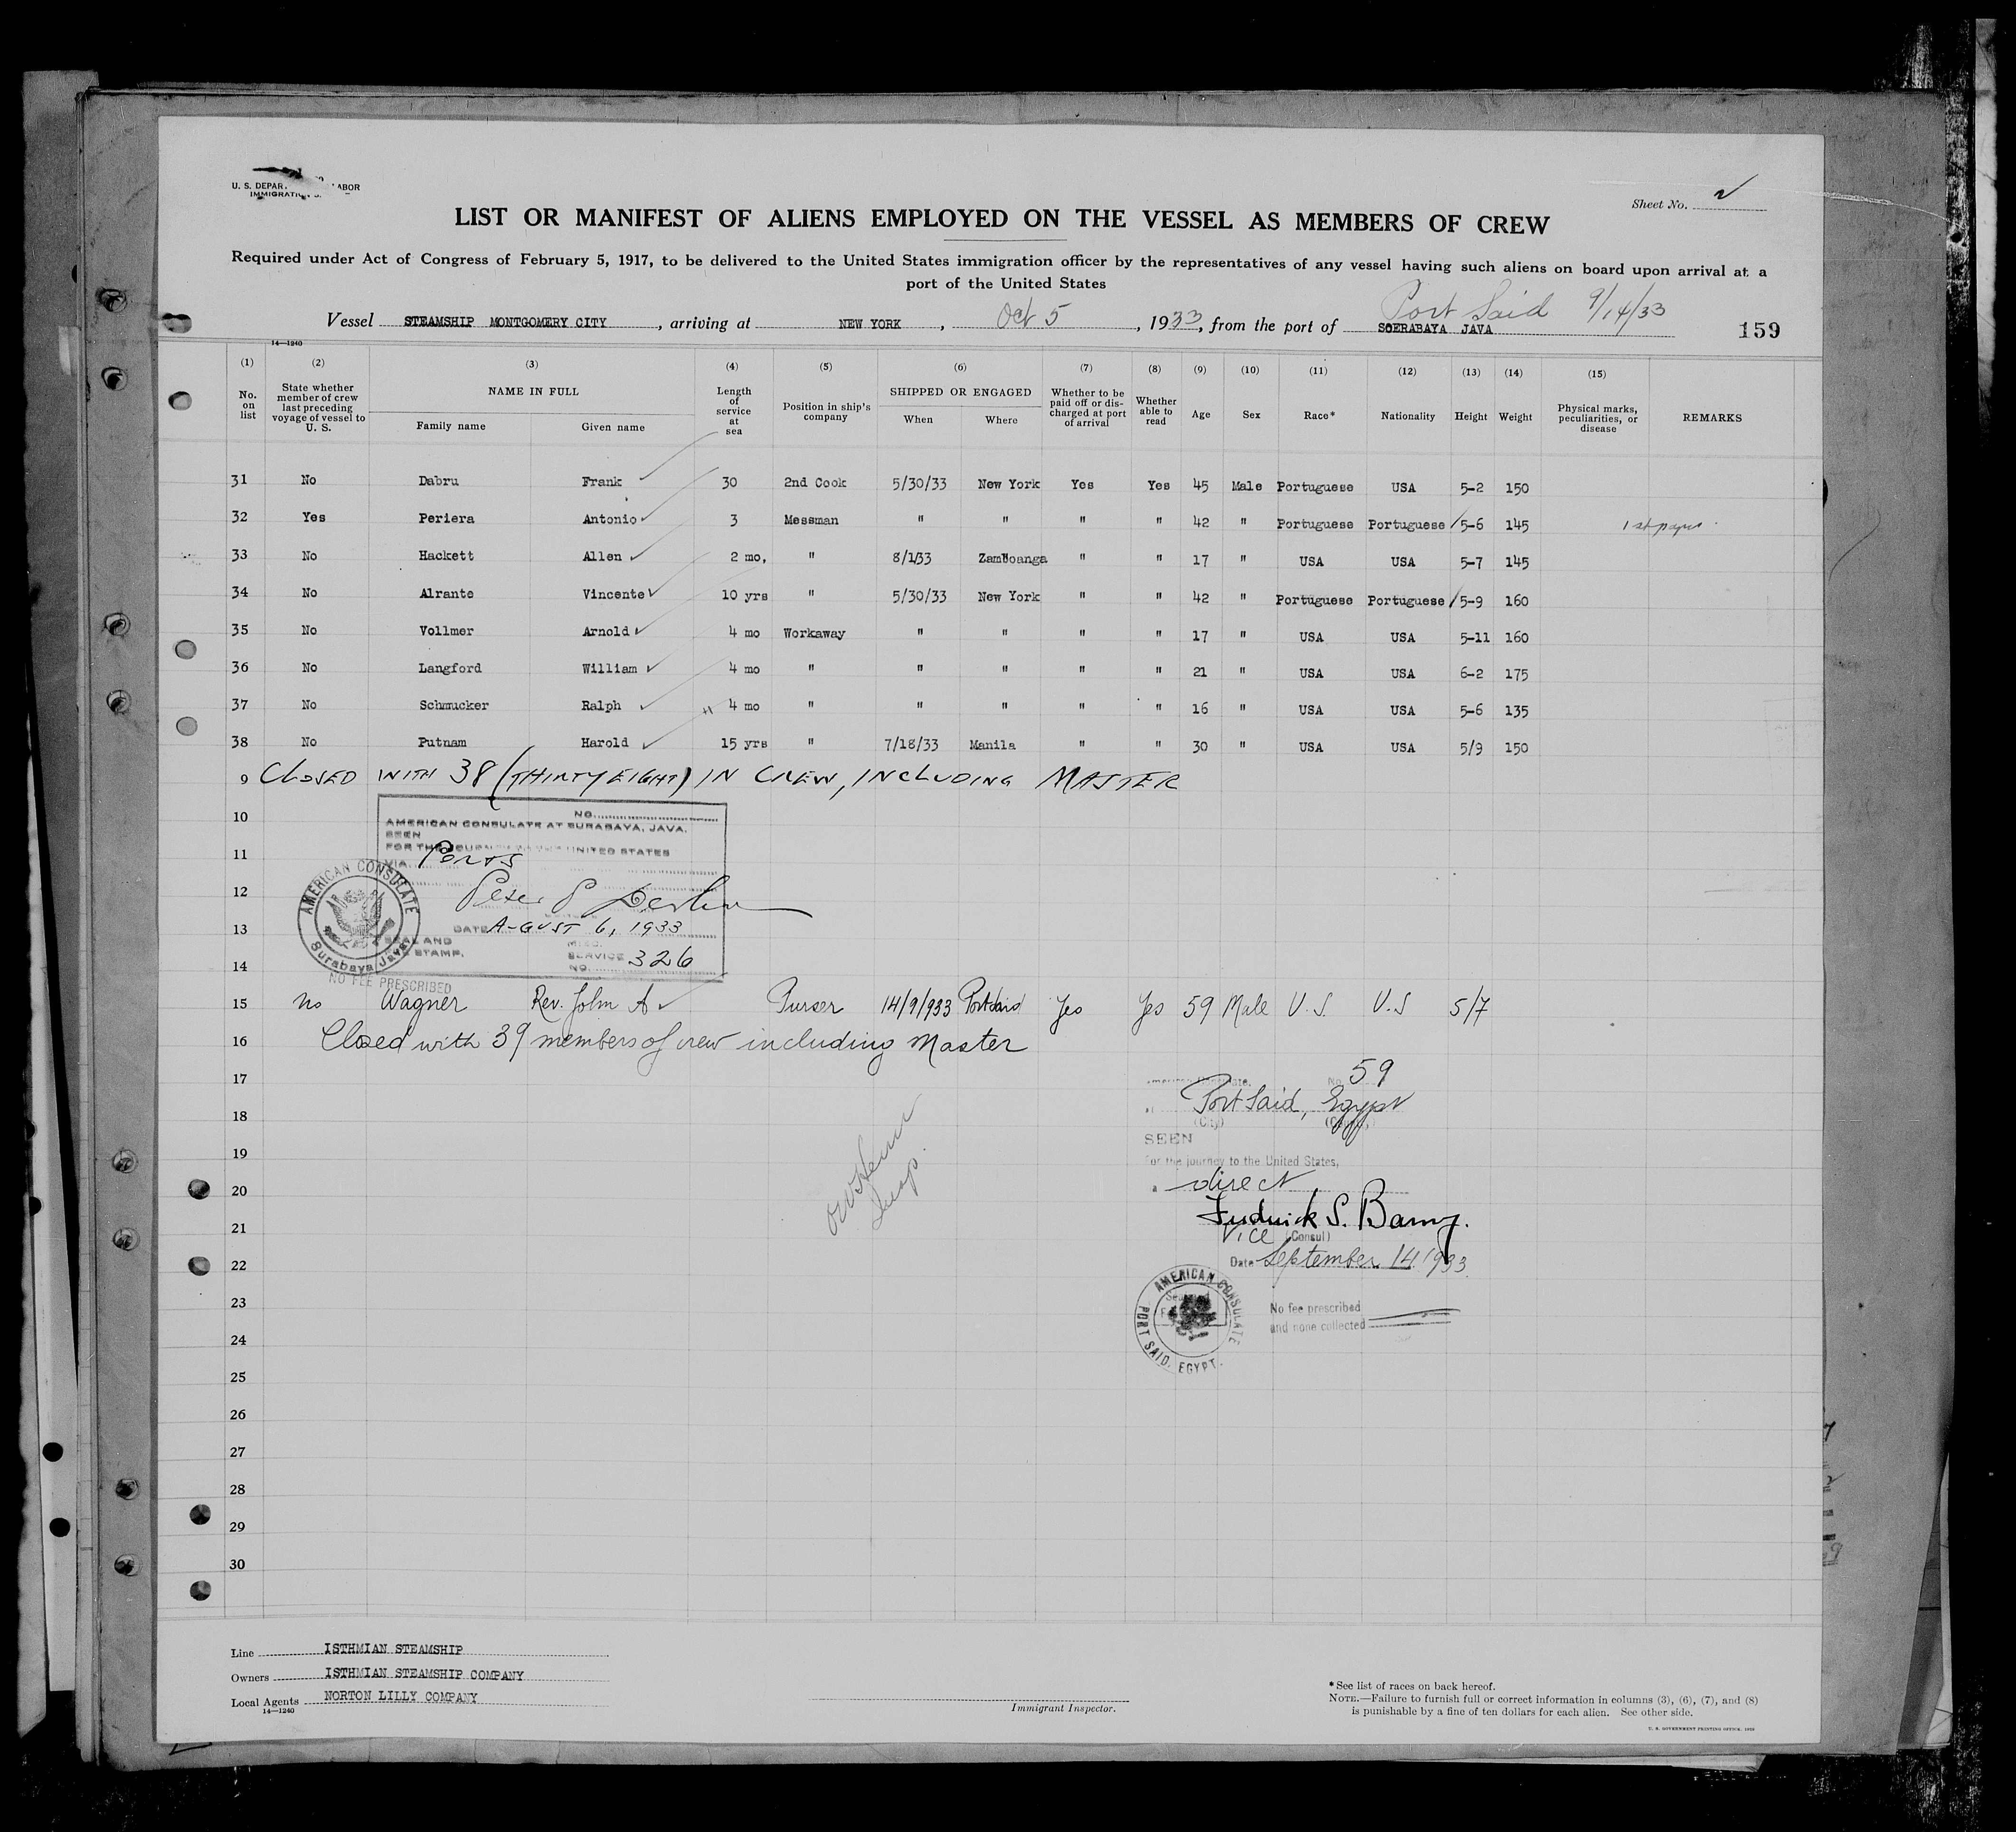 U. S. DEPAR ABOR
IMMIGRATION
Sheet No. 2
LIST OR MANIFEST OF ALIENS EMPLOYED ON THE VESSEL AS MEMBERS OF CREW
Required under Act of Congress of February 5, 1917, to be delivered to the United States immigration officer by the representatives of any vessel having such aliens on board upon arrival at a
port of the United States
Port Said 9/14/33
Vessel STEAMSHIP MONTGOMERY CITY, arriving at NEW YORK, Oct 5, 1933, from the port of SOERABAYA JAVA
159
14—1240
(1) (2) (3) (4) (5) (6) (7) (8) (9) (10) (11) (12) (13) (14) (15)
No. on list State whether member of crew last preceding voyage of vessel to U. S. NAME IN FULL Family name Given name Length of service at sea Position in ship's company SHIPPED OR ENGAGED When Where Whether to be paid off or discharged at port of arrival Whether able to read Age Sex Race* Nationality Height Weight Physical marks, peculiarities, or disease REMARKS
31 No Dabru Frank 30 2nd Cook 5/30/33 New York Yes Yes 45 Male Portuguese USA 5-2 150
32 Yes Periera Antonio 3 Messman " " " " 42 " Portuguese Portuguese 5-6 145 1st papers
33 No Hackett Allen 2 mo, " 8/1/33 Zamboanga " " 17 " USA USA 5-7 145
34 No Alrante Vincente 10 yrs " 5/30/33 New York " " 42 " Portuguese Portuguese 5-9 160
35 No Vollmer Arnold 4 mo Workaway " " " " 17 " USA USA 5-11 160
36 No Langford William 4 mo " " " " " 21 " USA USA 6-2 175
37 No Schmucker Ralph 4 mo " " " " " 16 " USA USA 5-6 135
38 No Putnam Harold 15 yrs " 7/18/33 Manila " " 30 " USA USA 5/9 150
9 CLOSED WITH 38 (THIRTY EIGHT) IN CREW, INCLUDING MASTER
10
NO.
AMERICAN CONSULATE AT SURABAYA, JAVA.
SEEN
FOR THE JOURNEY TO THE UNITED STATES
11
VIA Ports
12
Peter
13
DATE AUGUST 6, 1933
SEAL AND STAMP.
SERVICE NO. 326
AMERICAN CONSULATE Surabaya Java
14
NO FEE PRESCRIBED
15 no Wagner Rev. John A Purser 14/9/933 Portsaid Yes Yes 59 Male U.S. U.S 5/7
16 Closed with 39 members of crew including Master
17
American Consulate, No. 59
at Port Said, Egypt
18
(City) (Country)
SEEN
19
For the journey to the United States,
20
direct
21
Frederick S. Barny.
Vice (Consul)
22
Date September 14 1933
Insp.
AMERICAN CONSULATE PORT SAID. EGYPT.
23
No fee prescribed
and none collected
24
25
26
27
28
29
30
Line ISTHMIAN STEAMSHIP
Owners ISTHMIAN STEAMSHIP COMPANY
Local Agents NORTON LILLY COMPANY
14—1240
Immigrant Inspector.
* See list of races on back hereof.
NOTE.—Failure to furnish full or correct information in columns (3), (6), (7), and (8)
is punishable by a fine of ten dollars for each alien. See other side.